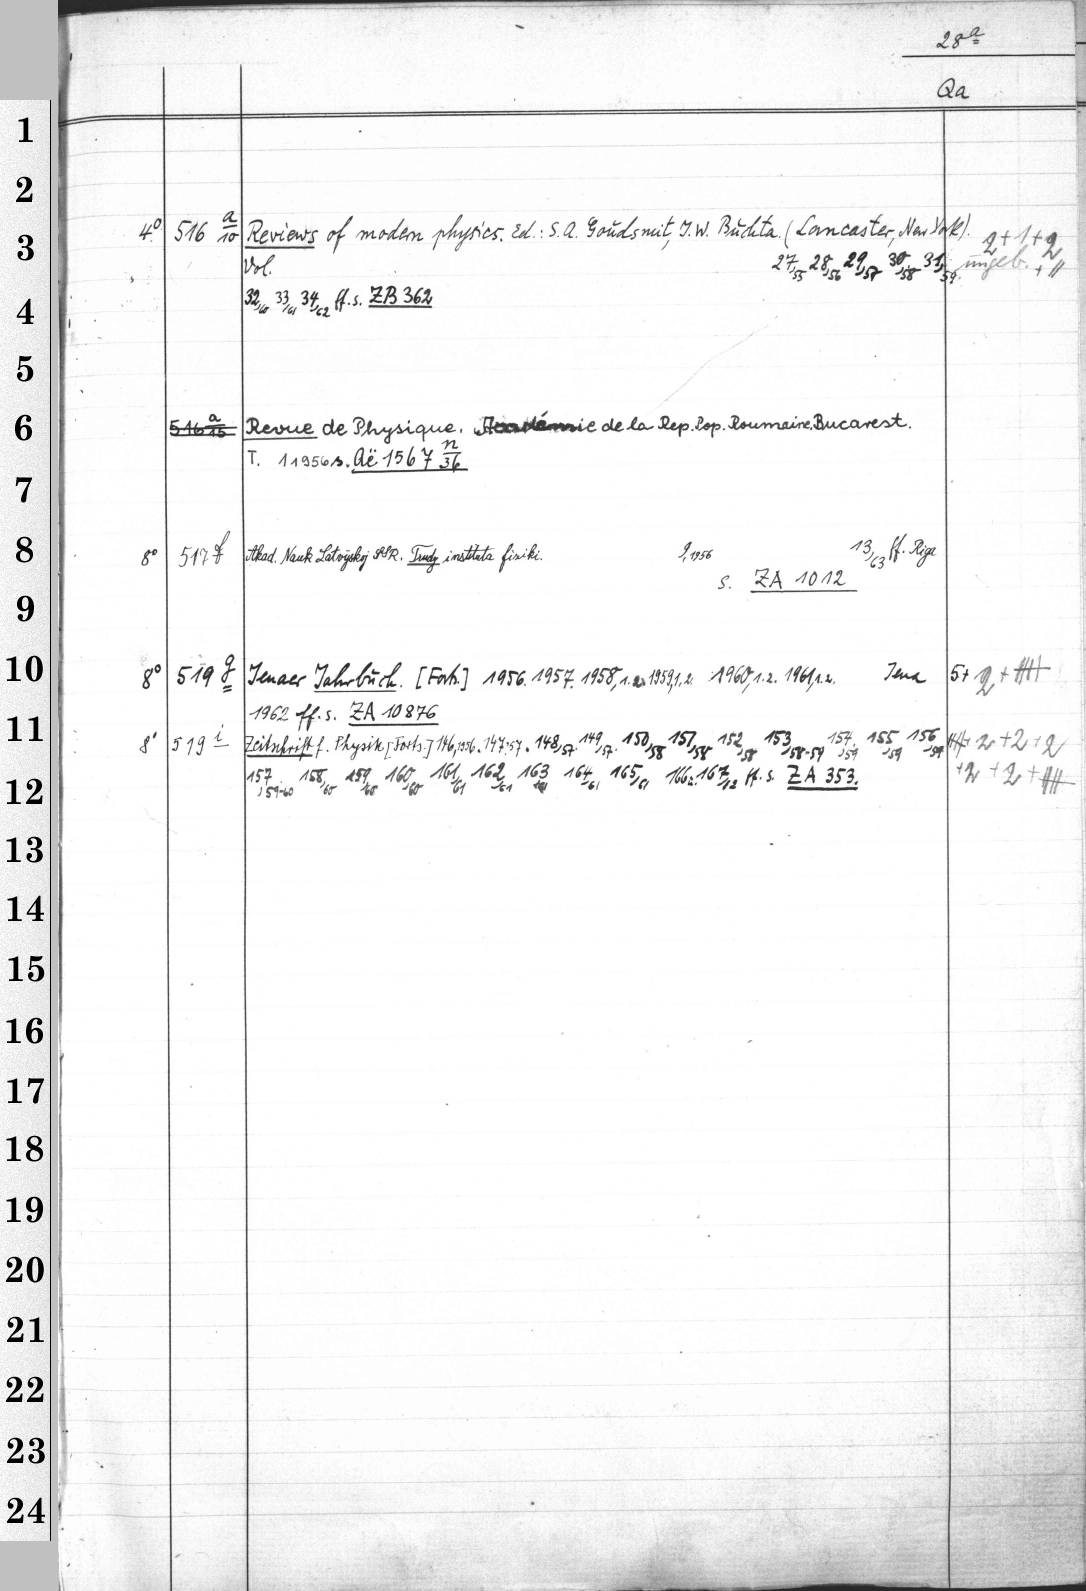 28a
Qa
1
2
3
4
5
6
7
8
9
10
11
12
13
14
15
16
17
18
19
20
21
22
23
24
4° 516 a/10 Reviews of modern physics. Ed.: S.A. Goudsmit, J.W. Buchta. (Lancaster, New York). 2+1+2
Vol. 27,55 28,56 29,57 30,58 31,59. ungeb. + 11
32,60 33,61 34,62 ff. s. ZB 362
516 a/15 Revue de Physique. Académie de la Rep. Pop. Roumaine, Bucarest.
T. 1 1956 s. Aë 1567 n/36
8° 517 f Akad. Nauk Latvijskoj SSR. Trudy instituta fiziki. 9,1956 13,63 ff. Riga
s. ZA 1012
8° 519 g Jenaer Jahrbuch. [Forts.] 1956. 1957. 1958,1.2. 1959,1.2. 1960,1.2. 1961,1.2. Jena 5+2+
1962 ff. s. ZA 10876
8° 519 i Zeitschrift f. Physik [Forts.] 146,1956. 147,57. 148,57. 149,57. 150,58 151,58 152,58 153,58-59 154,59 155,59 156,59 +2+2+2
157,59-60 158,60 159,60 160,60 161,61 162,61 163,61 164,61 165,61 166 u. 167/62 ff. s. ZA 353. +2+2+